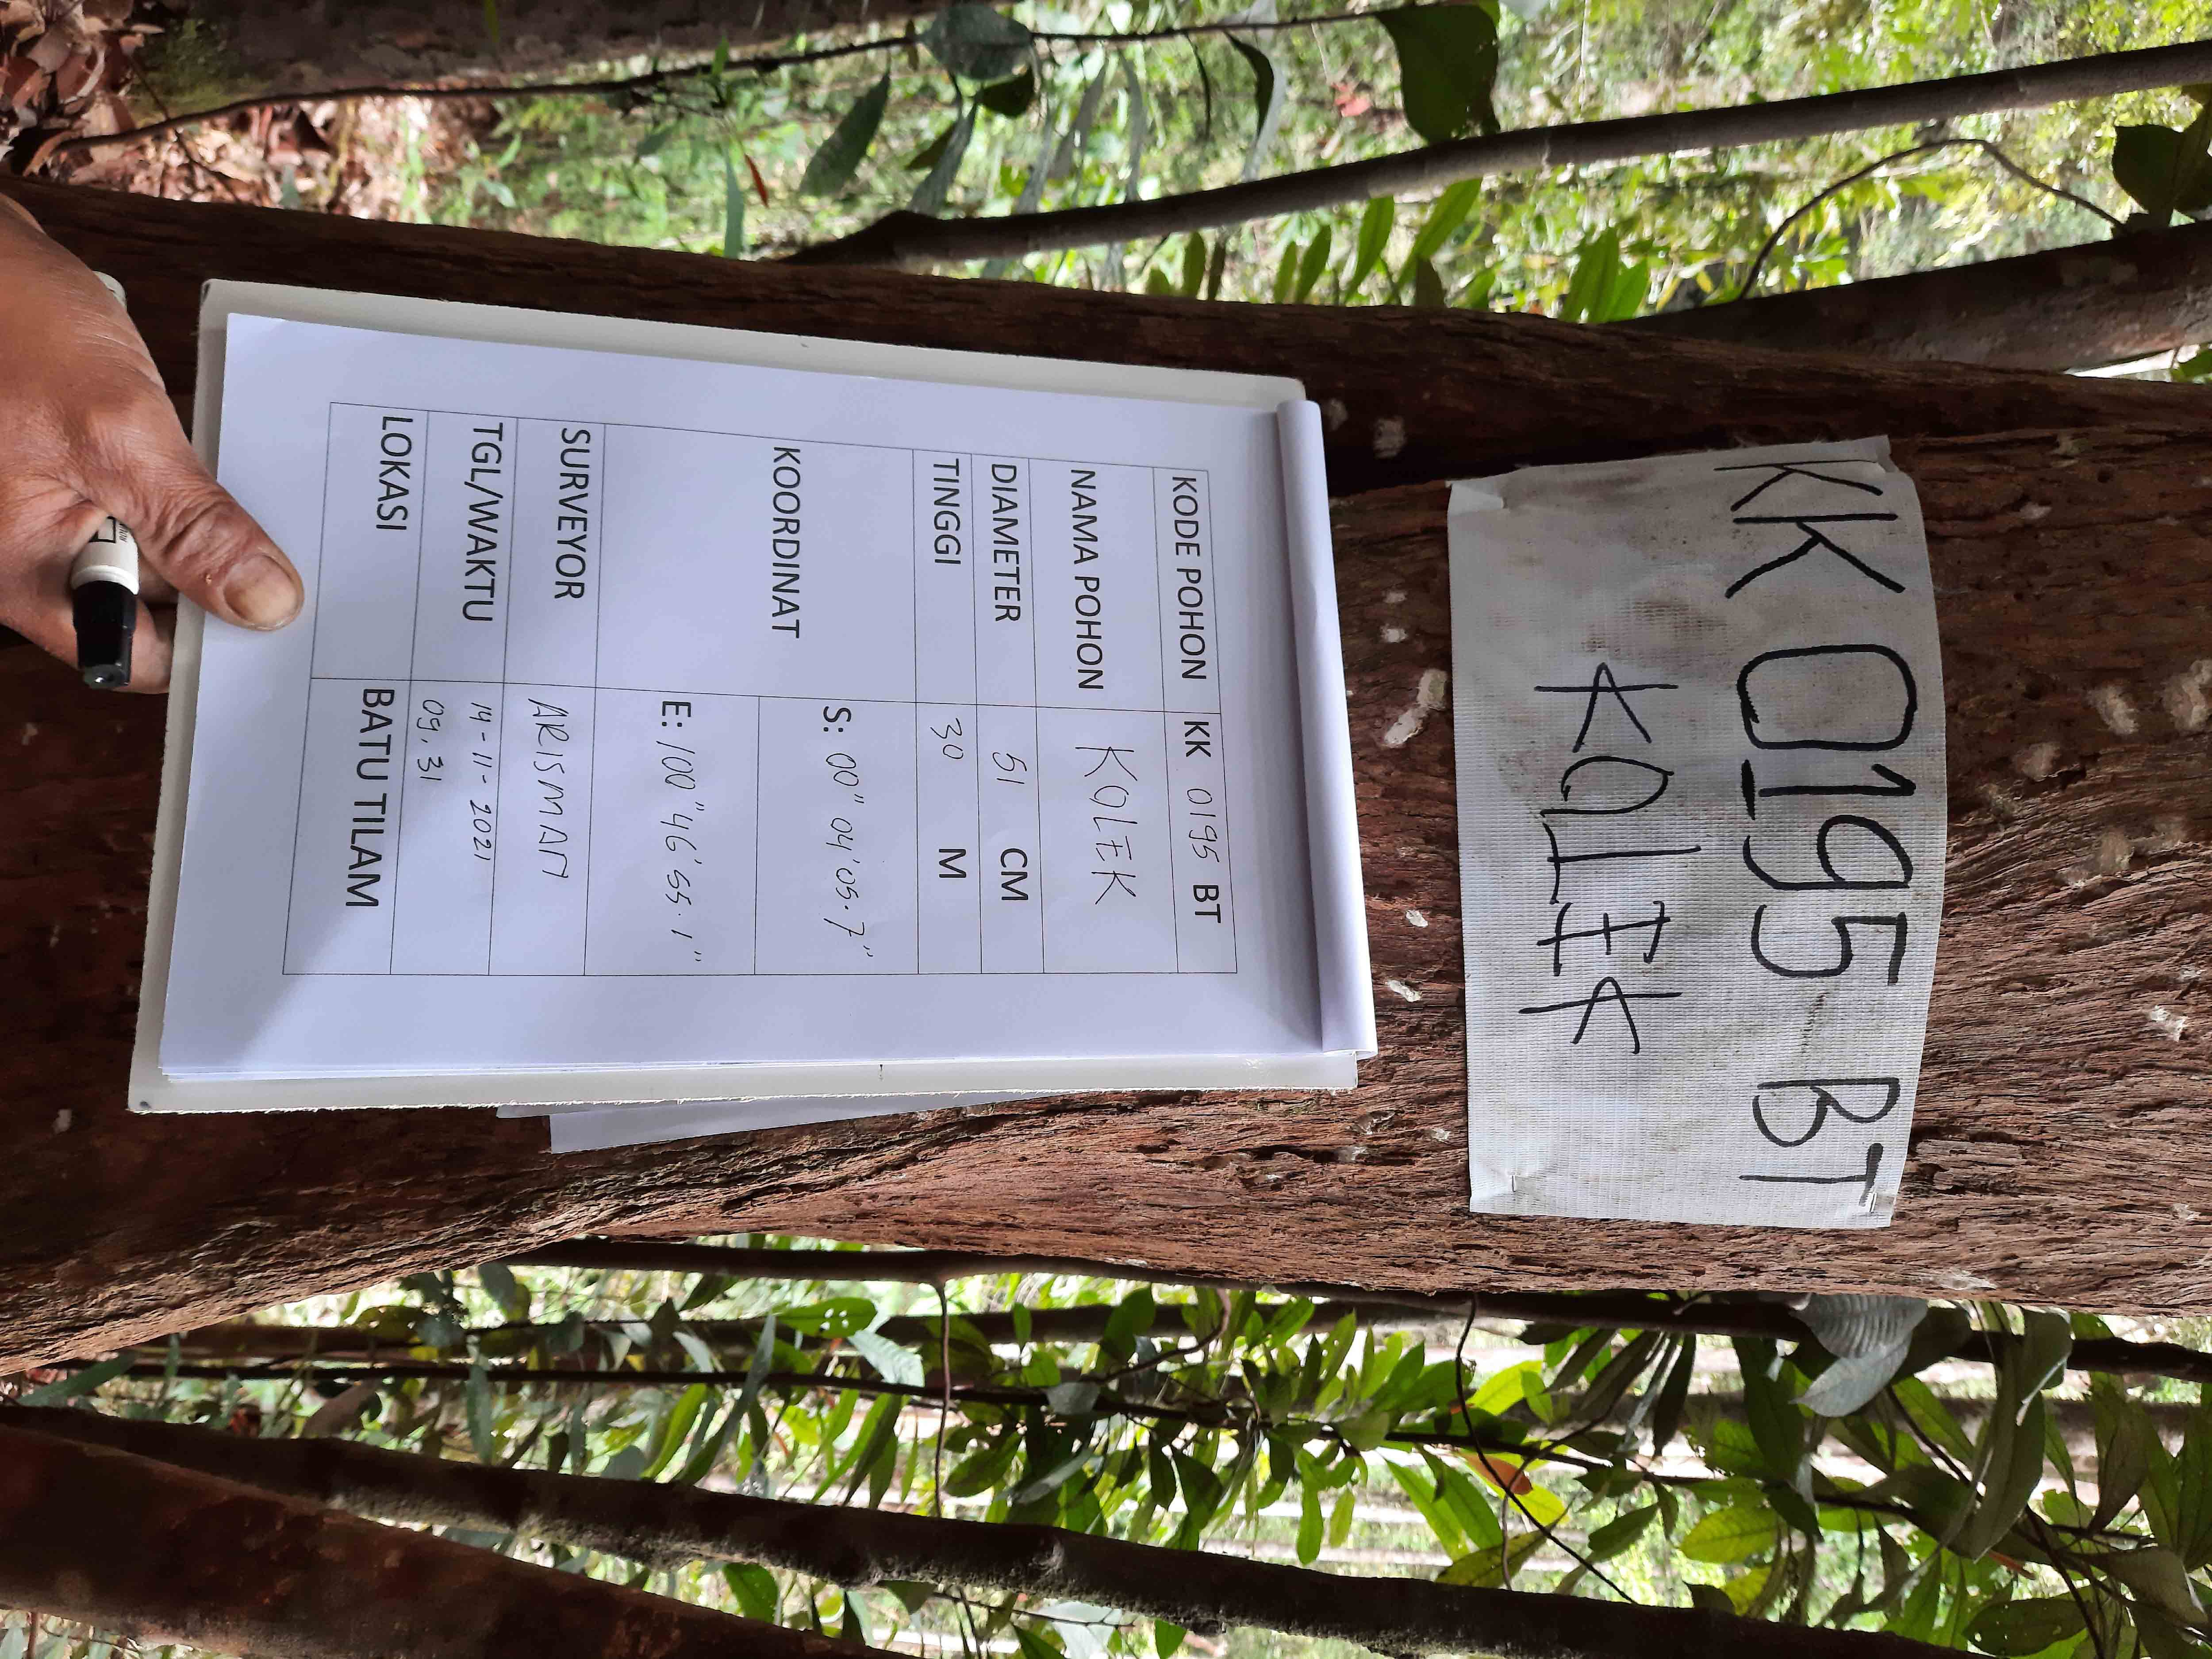 KK 0195 BT
KOLEK
KODE POHON KK 0195 BT
NAMA POHON KOLEK
DIAMETER 51 CM
TINGGI 30 M
KOORDINAT S: 00" 04' 05.7"
E: 100" 46' 55.1"
SURVEYOR ARISMAN
TGL/WAKTU 14-11-2021
09.31
LOKASI BATU TILAM